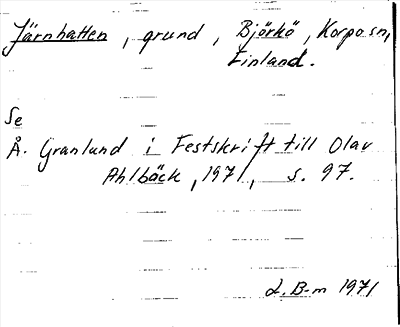 Järnhatten, grund, Björkö, Korpo sn,
Finland.
Se
Å. Granlund i Festskrift till Olav
Ahlbäck, 1971, s. 97.
L. B-m 1971